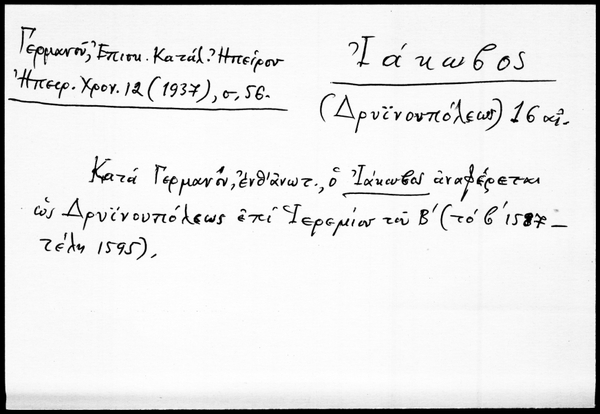 Γερμανοῦ, Ἐπισκ. Κατάλ. Ἠπείρου
Ἠπειρ. Χρον. 12 (1937), σ. 56.
Ἰάκωβος
(Δρυϊνουπόλεως) 16 αἰ.
Κατά Γερμανὸν, ἐνθ'ἀνωτ., ὁ Ἰάκωβος ἀναφέρεται
ὡς Δρυϊνουπόλεως ἐπί Ἱερεμίου τοῦ Β΄ (τό β΄ 1587 –
τέλη 1595).